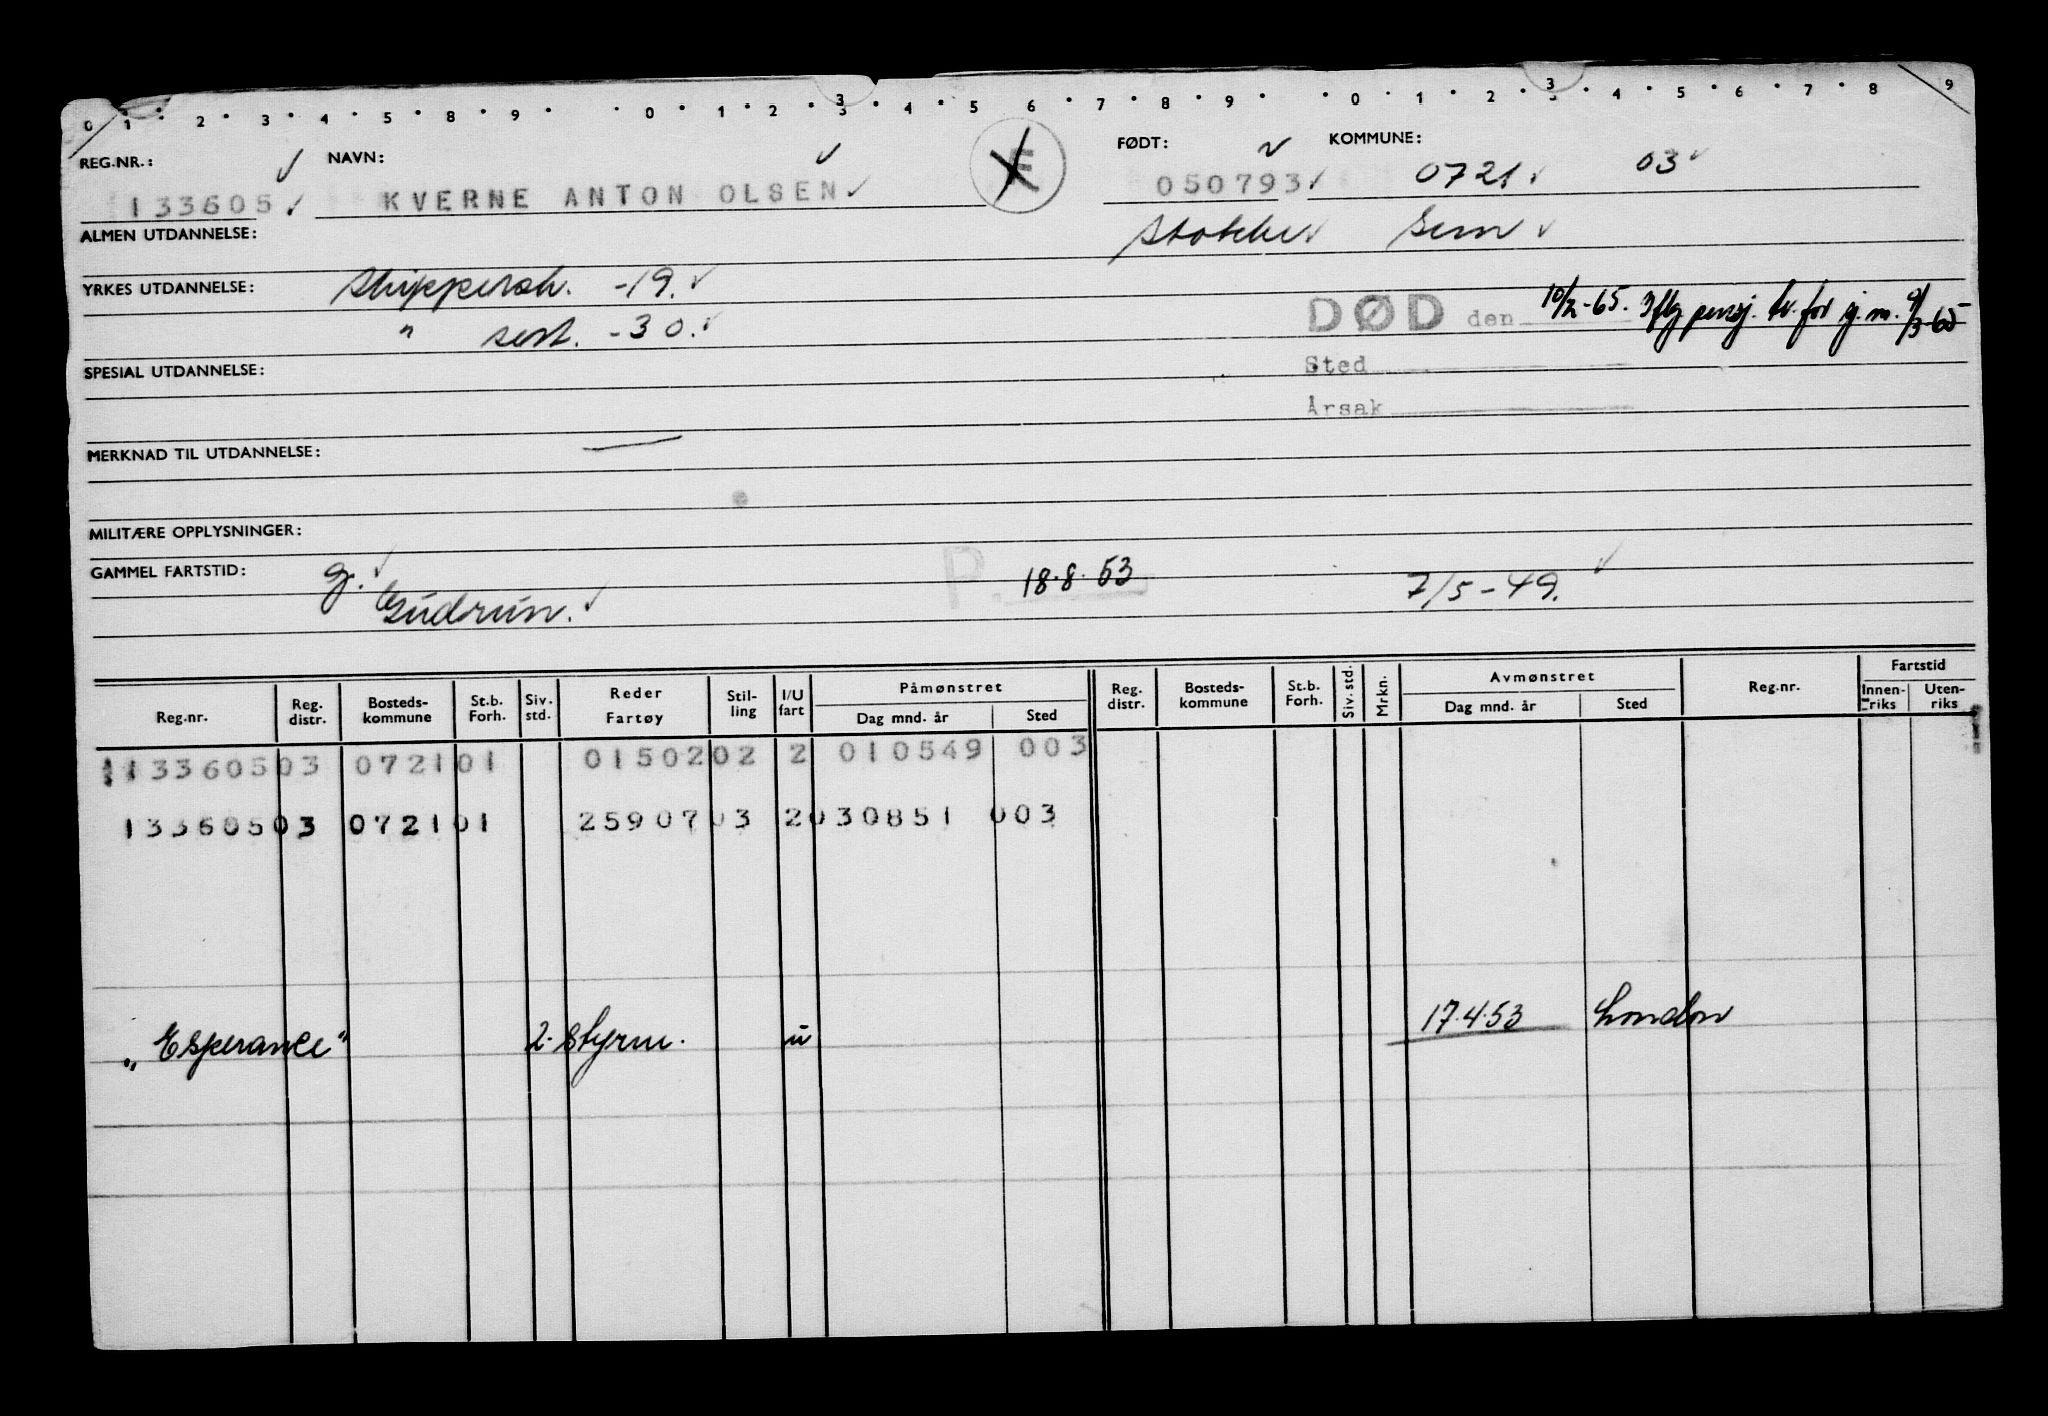 0 1 2 3 4 5 8 9 0 1 2 3 4 5 6 7 8 9 0 1 2 3 4 5 6 7 8 9
REG.NR.: NAVN: FØDT: KOMMUNE:
133605 KVERNE ANTON OLSEN E 050793 0721 03
ALMEN UTDANNELSE: Stokke Sem
YRKES UTDANNELSE: Skippersk. -19.
" sert. -30. DØD den 10/2-65. Iflg pensj. tr. for sj.m. 9/3-65
SPESIAL UTDANNELSE: Sted
Årsak
MERKNAD TIL UTDANNELSE: —
MILITÆRE OPPLYSNINGER:
GAMMEL FARTSTID: g. P. 18.8.53 7/5-49.
Gudrun.
Reg.nr. Reg. distr. Bosteds-kommune St.b. Forh. Siv. std. Reder Fartøy Stil-ling I/U fart Påmønstret Dag mnd. år Sted Reg. distr. Bosteds-kommune St.b. Forh. Siv. std. Mrkn. Avmønstret Dag mnd. år Sted Reg.nr. Fartstid Innen-riks Uten-riks
133605 03 0721 01 01502 02 2 010549 003
133605 03 0721 01 25907 03 2 030851 003
"Esperance" 2. Styrm. u 17.4.53 London